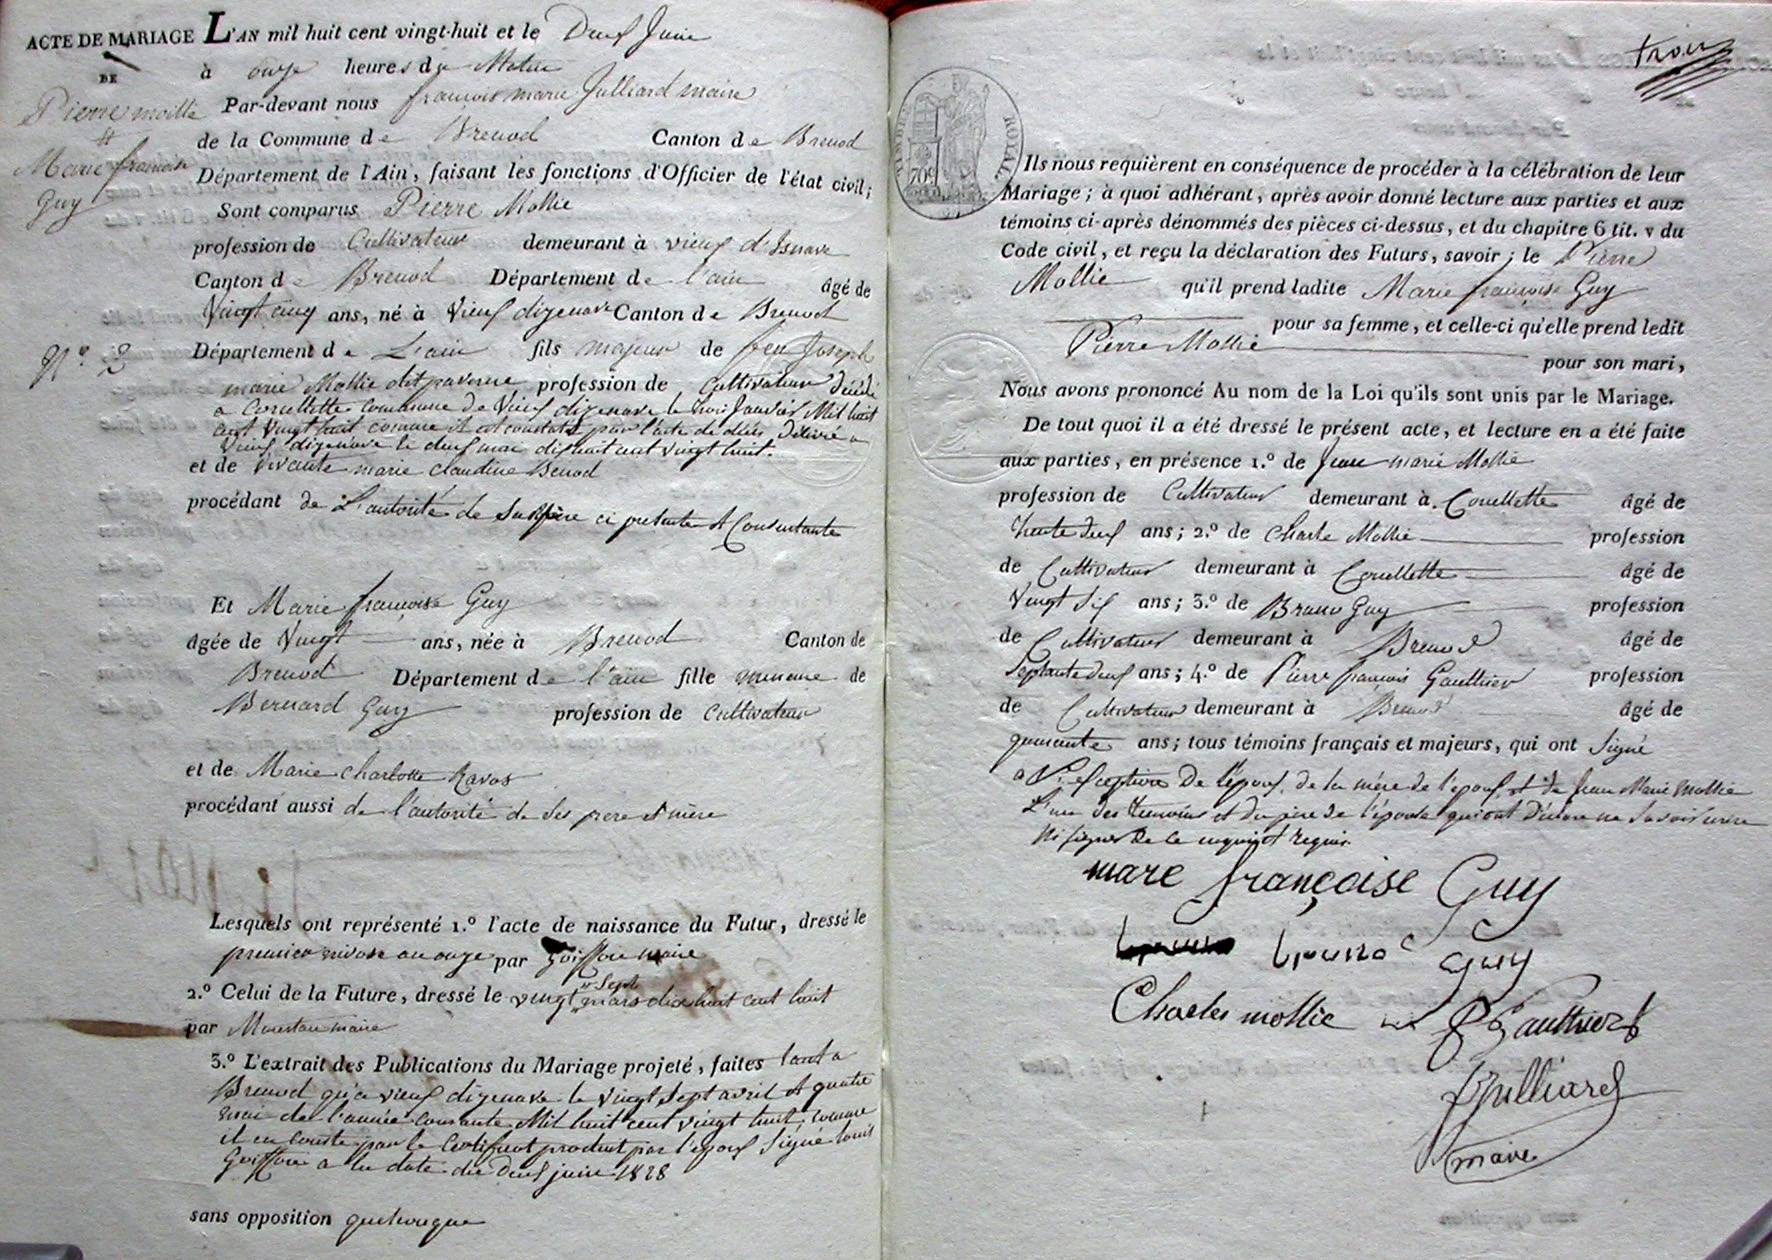 ACTE DE MARIAGE L'AN mil huit cent vingt-huit et le Deux Juin
DE
à onze heures du Matin
Pierre mollie
Par-devant nous françois marie Julliard maire
de la Commune de Brenod Canton de Brenod
Marie françoise
Guy
Département de l'Ain, faisant les fonctions d'Officier de l'état civil;
Sont comparus Pierre Mollie
profession de Cultivateur demeurant à vieux d'Isnave
Canton de Brenod Département de l'ain âgé de
Vingt cinq ans, né à Vieux dizenave Canton de Brenod
N.º 2
Département de L'ain fils majeur de feu Joseph
marie Mollie dit profession de Cultivateur Décédé
a Corellette commune de Vieux dizenave le trois Janvier Mil huit
cent Vingt huit comme il est constaté par l'acte de décès délivré a
Vieux dizenave le deux mai dix huit cent vingt huit.
et de vivante marie claudine Benod
procédant de L'autorité de Sa Mère ci présente et Consentante
Et Marie françoise Guy
âgée de Vingt ans, née à Brenod Canton de
Brenod Département de l'ain fille mineure de
Bernard Guy profession de Cultivateur
et de Marie Charlotte Ravos
procédant aussi de l'autorité de Ses pere et mère
Lesquels ont représenté 1.º l'acte de naissance du Futur, dressé le
premier nivose an onze par Goiffon maire
2.º Celui de la Future, dressé le vingt Sept mars dix huit cent huit
par maire
3.º L'extrait des Publications du Mariage projeté, faites tant a
Brenod qu'a vieux dizenave le vingt Sept avril et quatre
mai de l'année courante Mil huit cent vingt huit comme
il en conste par le Certificat produit par l'epoux Signé louis
Goiffon a la date du Deux juin 1828
sans opposition quelconque
trois
TIMBRE ROYAL
Ils nous requièrent en conséquence de procéder à la célébration de leur
Mariage; à quoi adhérant, après avoir donné lecture aux parties et aux
témoins ci-après dénommés des pièces ci-dessus, et du chapitre 6 tit. v du
Code civil, et reçu la déclaration des Futurs, savoir; le Pierre
Mollie qu'il prend ladite Marie françoise Guy
pour sa femme, et celle-ci qu'elle prend ledit
Pierre Mollie
pour son mari,
Nous avons prononcé Au nom de la Loi qu'ils sont unis par le Mariage.
De tout quoi il a été dressé le présent acte, et lecture en a été faite
aux parties, en présence 1.º de Jean marie Mollie
profession de Cultivateur demeurant à Corellette âgé de
trente deux ans; 2.º de Charle Mollie profession
de Cultivateur demeurant à Corellette âgé de
Vingt Six ans; 3.º de Bruno Guy profession
de Cultivateur demeurant à Brenod âgé de
Septante deux ans; 4.º de Pierre françois Gauthier profession
de Cultivateur demeurant à Brenod âgé de
quarante ans; tous témoins français et majeurs, qui ont Signé
a L'exception De l'époux, de la mère de l'epoux et de Jean Marie Mollie
L'un des témoins et du pere de l'épouse qui ont Déclaré ne Savoir écrire
Ni signer de ce enquis et requis.
mare françoise Guy
bruno Guy
Charles mollie
P F Gauthier
Julliard
maire